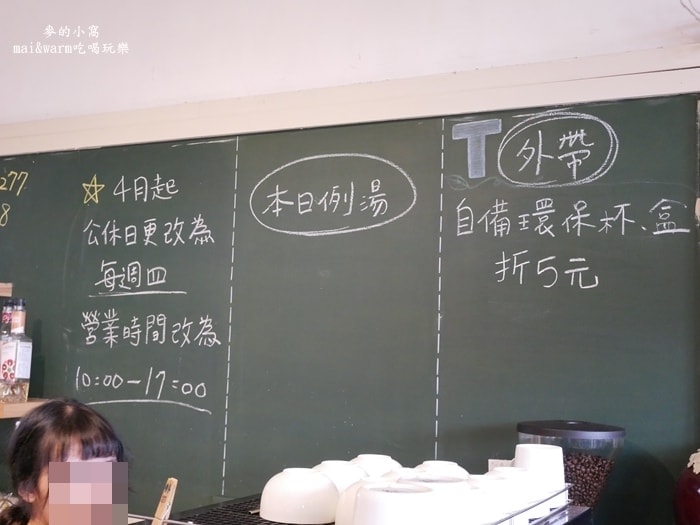 麥的小窩
mai&warm吃喝玩樂
277
8
☆ 4月起
公休日更改為
每週四
營業時間改為
10:00-17:00
本日例湯
T 外帶
自備環保杯、盒
折5元